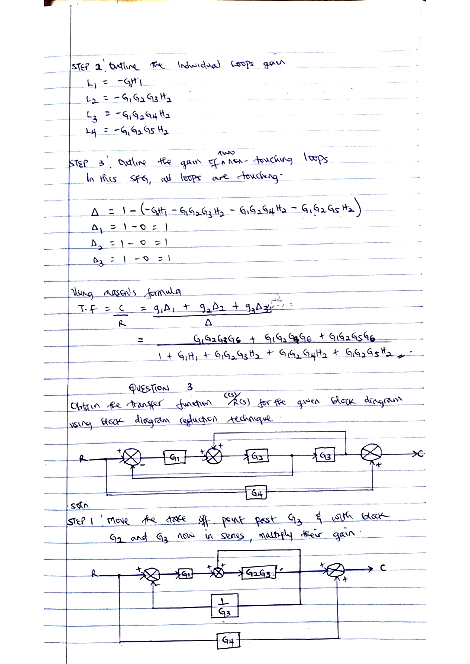 STEP 2: Outline the individual loops gain
L1 = -G1H1
L2 = -G1G2G3H2
L3 = -G1G2G4H2
L4 = -G1G2G5H2
STEP 3: Outline the gain of two non-touching loops
In this SFG, all loops are touching.
Δ = 1 - (-G1H1 - G1G2G3H2 - G1G2G4H2 - G1G2G5H2)
Δ1 = 1 - 0 = 1
Δ2 = 1 - 0 = 1
Δ3 = 1 - 0 = 1
Using mason's formula
T.F = C/R = g1Δ1 + g2Δ2 + g3Δ3 / Δ
= G1G2G3G6 + G1G2G4G6 + G1G2G5G6 / 1 + G1H1 + G1G2G3H2 + G1G2G4H2 + G1G2G5H2
QUESTION 3
Obtain the transfer function C(s)/R(s) for the given block diagram
using block diagram reduction technique.
R + - G1 + + G2 G3 + C
G4
soln
STEP 1: Move the take off point past G3 & with block
G2 and G3 now in series, multiply their gain
R + - G1 + + G2G3 + + C
1/G3
G4